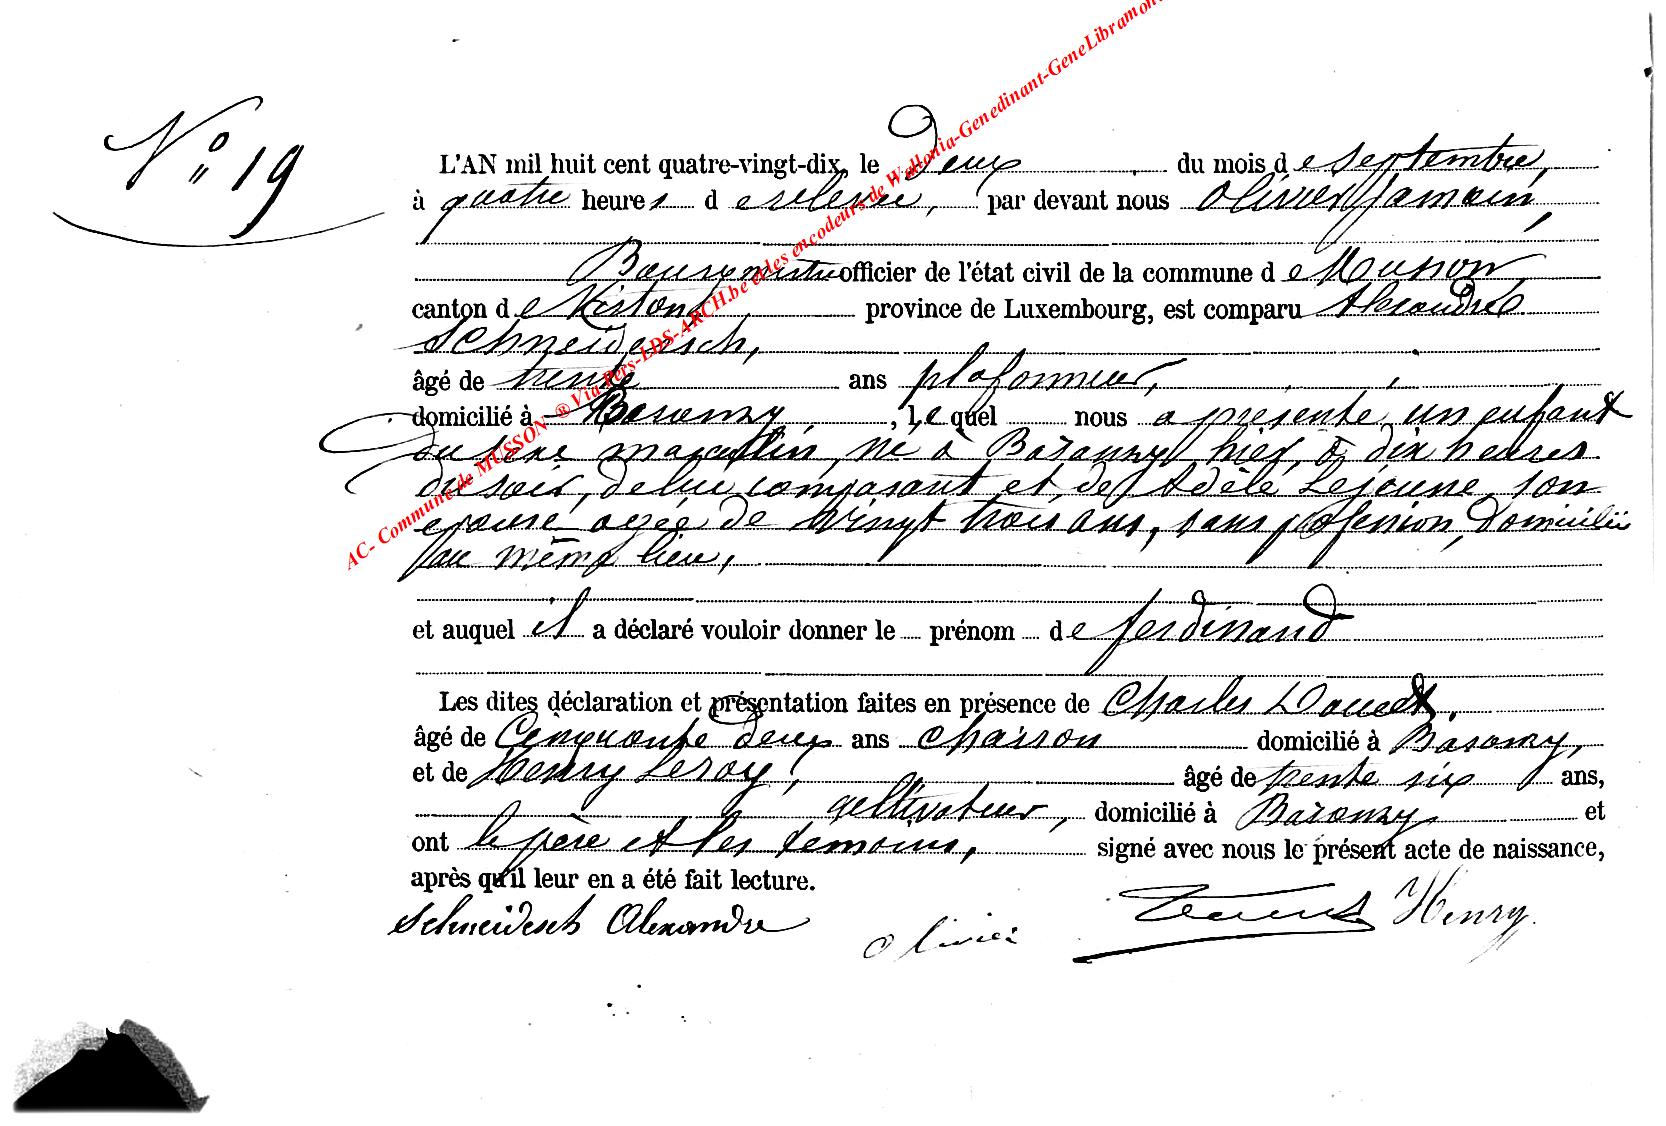 N° 19
L'AN mil huit cent quatre-vingt-dix, le Deux du mois de septembre,
à quatre heures de relevée, par devant nous Olivier Jamain,
Bourgmestre officier de l'état civil de la commune de Musson,
canton de Virton, province de Luxembourg, est comparu Alexandre
Schneidesch,
âgé de trente ans plafonneur,
domicilié à Baranzy, lequel nous a présenté un enfant
du sexe masculin, né à Baranzy hier, à dix heures
du soir, de lui comparant et de Adèle Lejeune, son
épouse agée de vingt trois ans, sans profession, domiciliés
au même lieu,
et auquel il a déclaré vouloir donner le prénom de ferdinand
Les dites déclaration et présentation faites en présence de Charles
âgé de Cinquante deux ans charron domicilié à Baranzy,
et de Henry Leroy, âgé de trente six ans,
cultivateur, domicilié à Baranzy et
ont le père et les témoins, signé avec nous le présent acte de naissance,
après qu'il leur en a été fait lecture.
Schneidesch Alexandre Olivier Henry
AC- Commune de MUSSON ® Via Pers-LDS-ARCH.be et les encodeurs de Wallonia-Genedinant-GeneLibramon